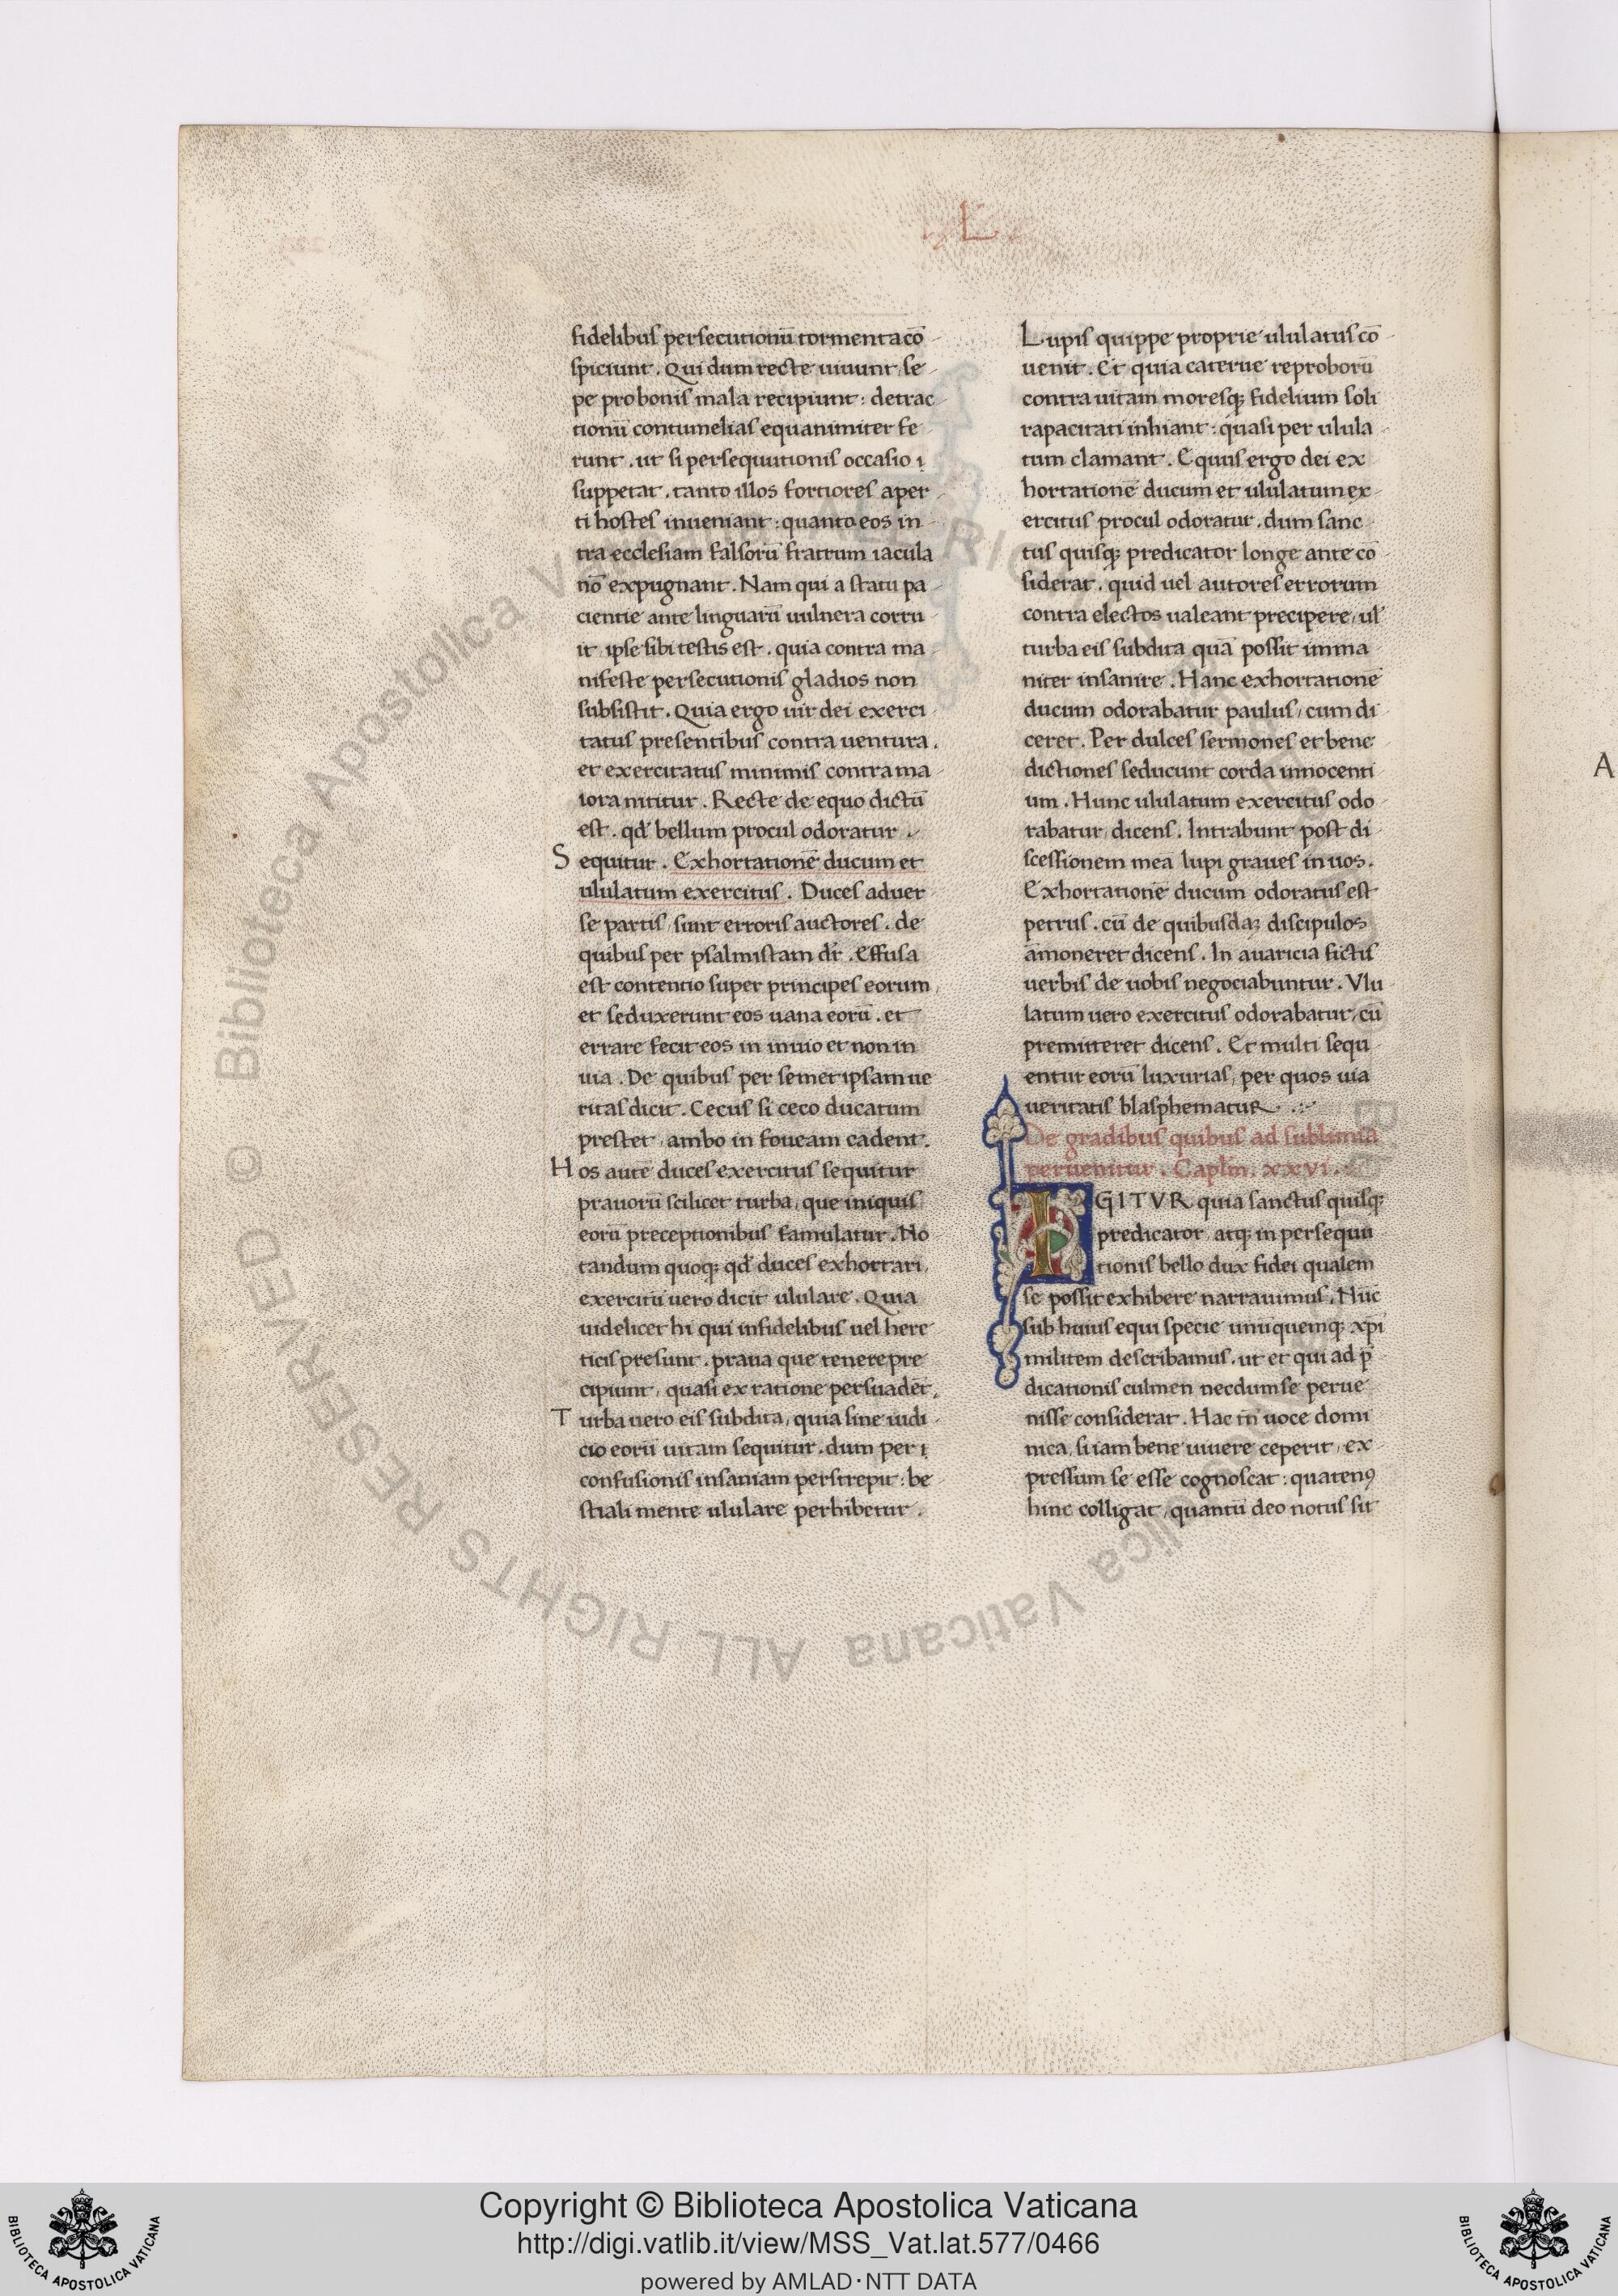 L
fidelibus persecutionū tormenta cō
spiciunt. Qui dum recte uiuunt, se
pe pro bonis mala recipiunt: detrac
tionū contumelias equanimiter fe
runt. ut si persequutionis occasio
suppetat. tanto illos fortiores aper
ti hostes inueniant: quanto eos in
tra ecclesiam falsorū fratrum iacula
nō expugnant. Nam qui a statu pa
cientie ante linguarū uulnera corru
it, ipse sibi testis est. quia contra ma
nifeste persecutionis gladios non
subsistit. Quia ergo uir dei exerci
tatus presentibus contra uentura.
et exercitatus minimis contra ma
iora nititur. Recte de equo dictū
est. qd' bellum procul odoratur.
Sequitur. Exhortationē ducum et
ululatum exercitus. Duces aduer
se partis, sunt erroris auctores. de
quibus per psalmistam dr̄. Effusa
est contentio super principes eorum,
et seduxerunt eos uana eorū. et
errare fecit eos in inuio et non in
uia. De quibus per semet ipsam ue
ritas dicit. Cecus si ceco ducatum
prestet, ambo in foueam cadent.
Hos autē duces exercitus sequitur
prauorū scilicet turba, que iniquis
eorū preceptionibus famulatur. No
tandum quoq; qd' duces exhortari,
exercitū uero dicit ululare. Quia
uidelicet hi qui infidelibus uel here
ticis presunt. praua que tenere pre
cipiunt, quasi ex ratione persuadēt.
Turba uero eis subdita, quia sine iudi
cio eorū uitam sequitur. dum per
confusionis insaniam perstrepit: be
stiali mente ululare perhibetur.
Lupis quippe proprie ululatus cō
uenit. Et quia caterue reproborū
contra uitam moresq; fidelium soli
rapacitati inhiant: quasi per ulula
tum clamant. Equus ergo dei ex
hortationē ducum et ululatum ex
ercitus procul odoratur. dum sanc
tus quisq; predicator longe ante cō
siderat. quid uel autores errorum
contra electos ualeant precipere, ul'
turba eis subdita quā possit imma
niter insanire. Hanc exhortationē
ducum odorabatur paulus, cum di
ceret. Per dulces sermones et bene
dictiones seducunt corda innocenti
um. Hunc ululatum exercitus odo
rabatur, dicens. Intrabunt post di
scessionem meā lupi graues in uos.
Exhortationē ducum odoratus est
petrus. cū de quibusdaꝫ discipulos
āmoneret dicens. In auaricia fictis
uerbis de uobis negociabuntur. Vlu
latum uero exercitus odorabatur, cū
premitteret dicens. Et multi sequ
entur eorū luxurias, per quos uia
ueritatis blasphematur.
De gradibus quibus ad sublimia
peruenitur. Capl'm. xxvi.
IGITVR quia sanctus quisq;
predicator, atq; in persequu
tionis bello dux fidei qualem
se possit exhibere narrauimus. Nūc
sub huius equi specie unūquemq; xp̄i
militem describamus. ut et qui ad p̄
dicationis culmen necdum se perue
nisse considerat. Hac tn̄ uoce domi
nica, si iam bene uiuere ceperit, ex
pressum se esse cognoscat: quatenꝰ
hinc colligat, quantū deo notus sit
A
© Biblioteca Apostolica Vaticana ALL RIGHTS RESERVED
Copyright © Biblioteca Apostolica Vaticana
http://digi.vatlib.it/view/MSS_Vat.lat.577/0466
powered by AMLAD·NTT DATA
BIBLIOTECA APOSTOLICA VATICANA
BIBLIOTECA APOSTOLICA VATICANA